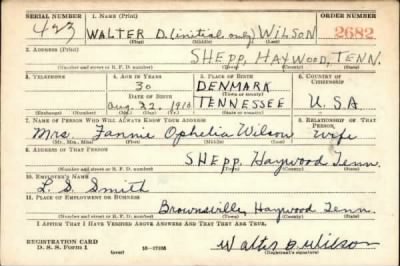 SERIAL NUMBER 1. NAME (Print) ORDER NUMBER
423 WALTER D. (initial only) WILSON 2682
(First) (Middle) (Last)
2. ADDRESS (Print)
SHEPP, HAYWOOD, TENN.
(Number and street or R. F. D. number) (Town) (County) (State)
3. TELEPHONE 4. AGE IN YEARS 5. PLACE OF BIRTH 6. COUNTRY OF CITIZENSHIP
30 DENMARK
DATE OF BIRTH (Town or county)
Aug. 22, 1910 TENNESSEE U.S.A
(Exchange) (Number) (Mo.) (Day) (Yr.) (State or country)
7. NAME OF PERSON WHO WILL ALWAYS KNOW YOUR ADDRESS 8. RELATIONSHIP OF THAT PERSON
Mrs. Fannie Ophelia Wilson Wife
(Mr., Mrs., Miss) (First) (Middle) (Last)
9. ADDRESS OF THAT PERSON
SHEPP, Haywood Tenn.
(Number and street or R. F. D. number) (Town) (County) (State)
10. EMPLOYER'S NAME
L. S. Smith
11. PLACE OF EMPLOYMENT OR BUSINESS
Brownsville, Haywood Tenn.
(Number and street or R. F. D. number) (Town) (County) (State)
I AFFIRM THAT I HAVE VERIFIED ABOVE ANSWERS AND THAT THEY ARE TRUE.
REGISTRATION CARD
D. S. S. Form 1 (over) 16-17105 Walter D. Wilson
(Registrant's signature)